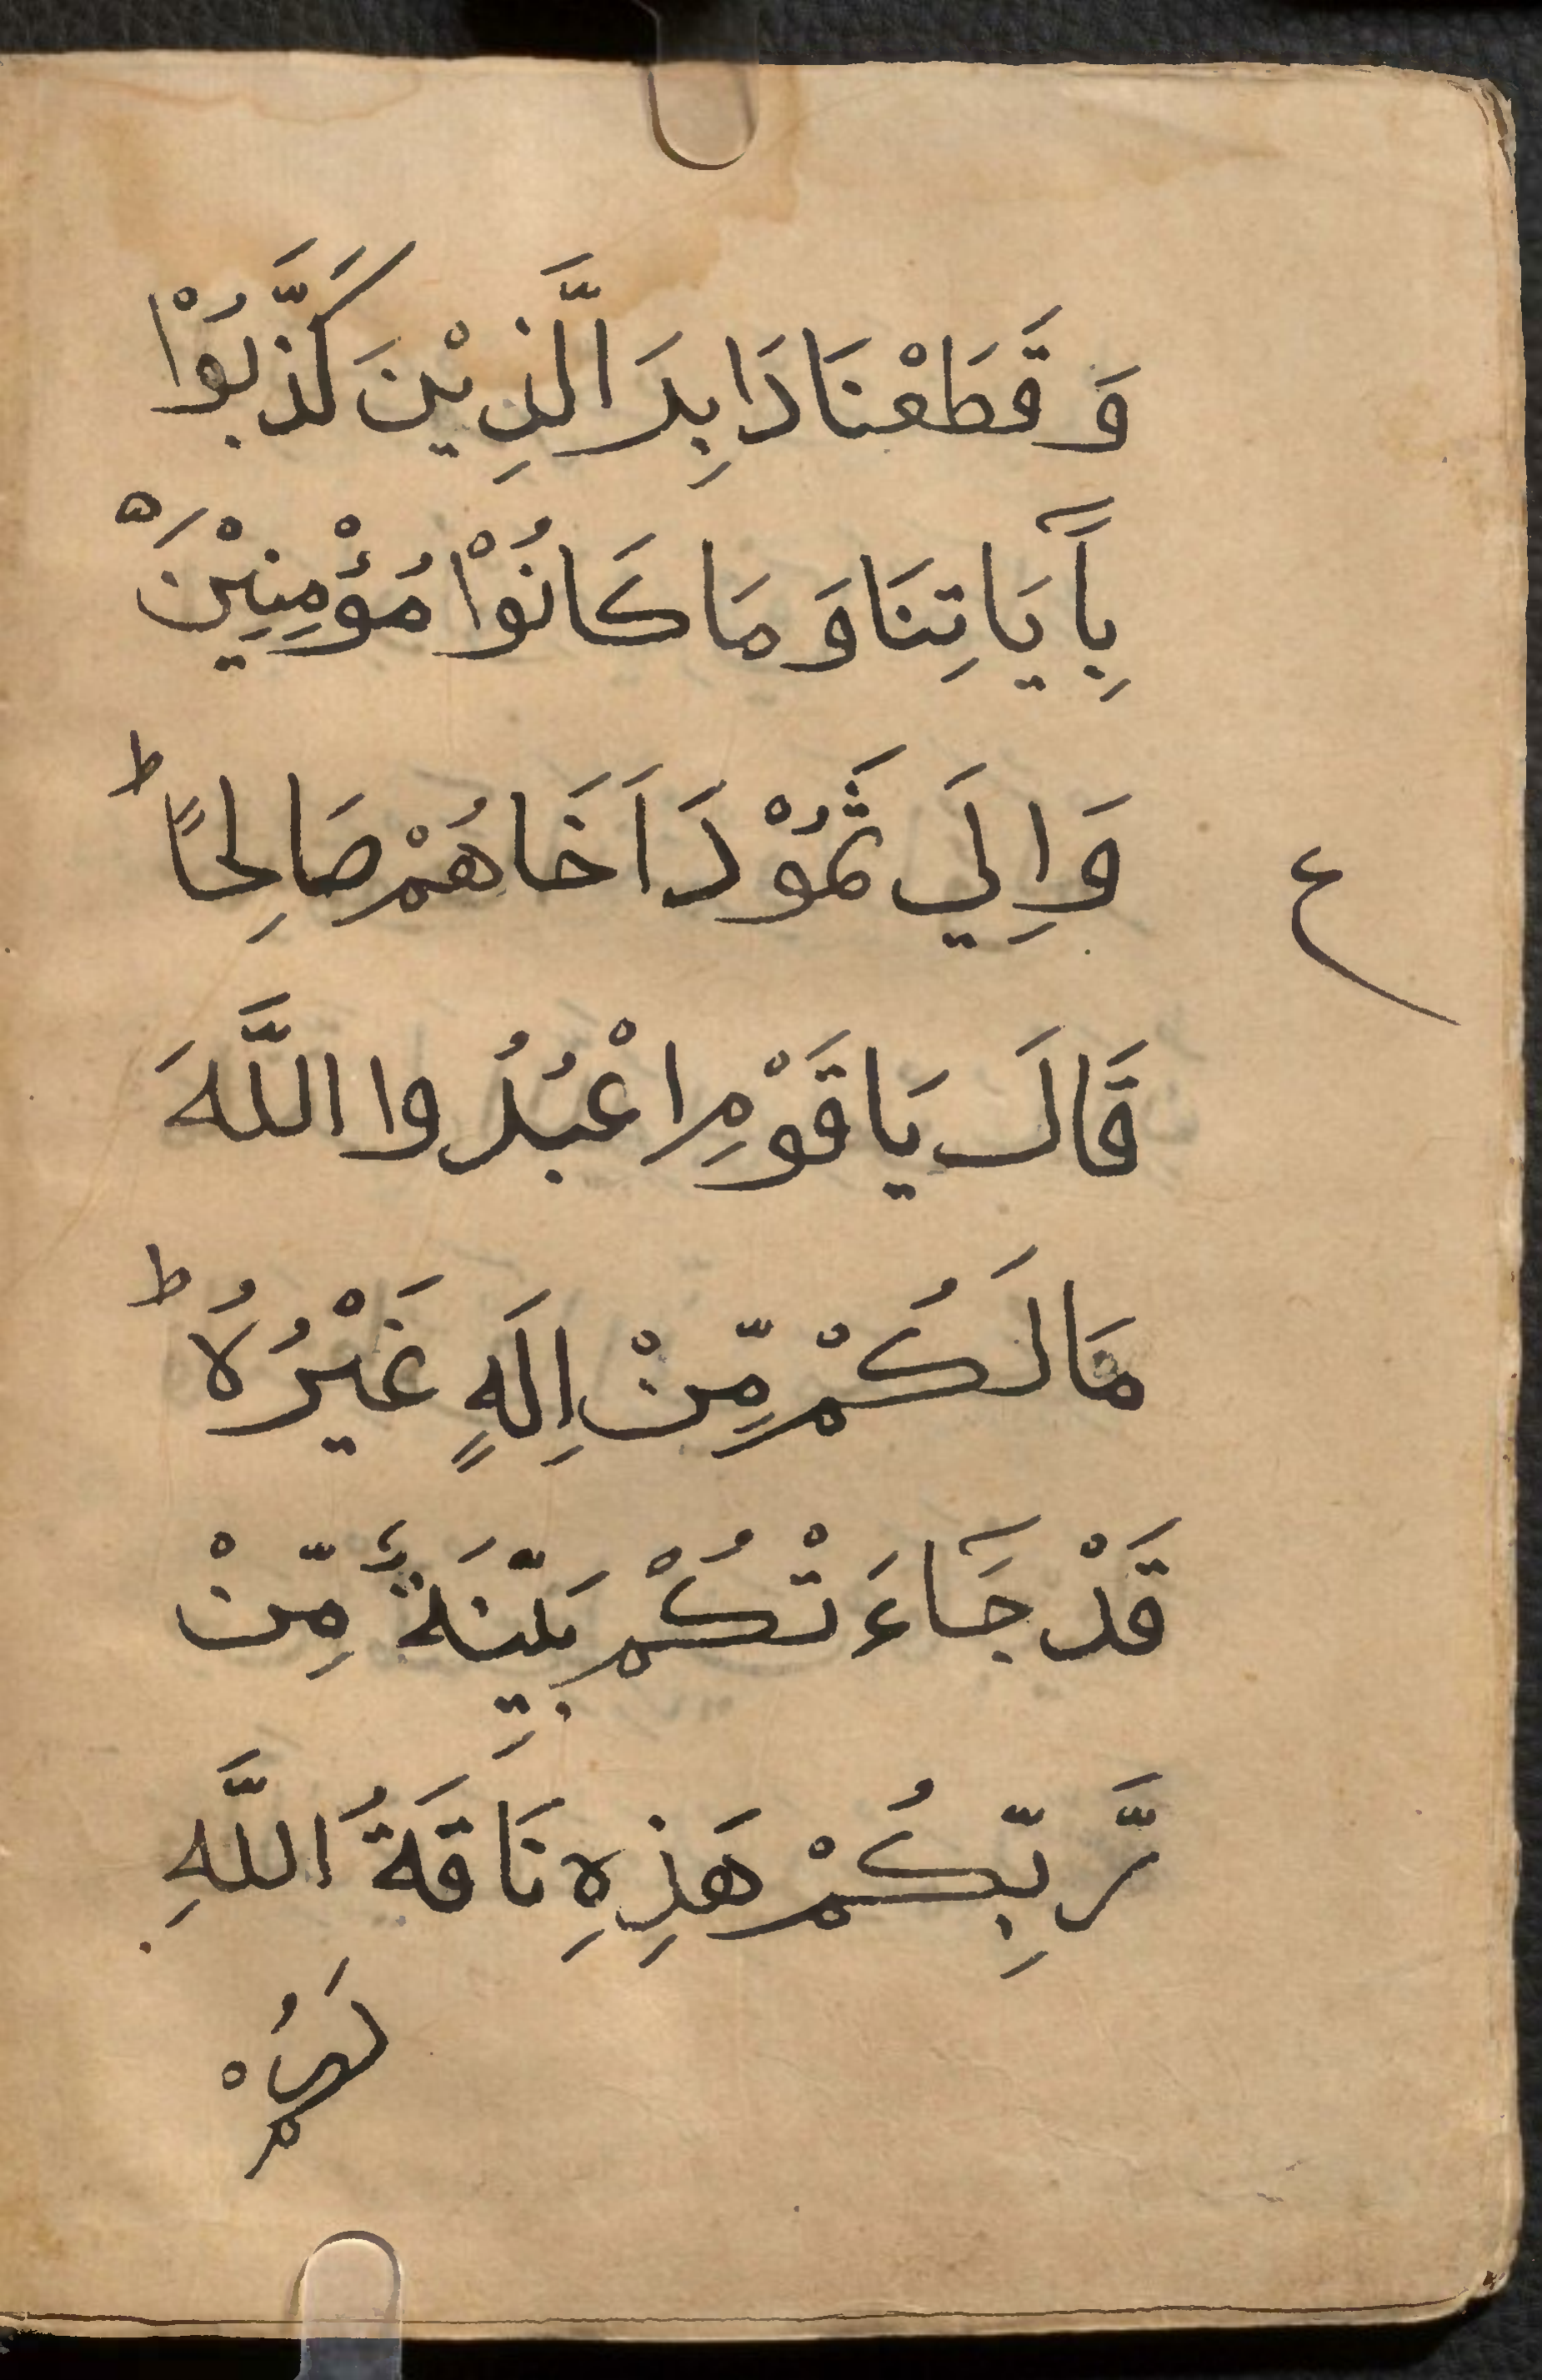 وَقَطَعْنَا دَابِرَ الَّذِيْنَ كَذَّبُوْا
بِآيَاتِنَا وَمَا كَانُوْا مُؤْمِنِيْنَ ه
وَاِلَي ثَمُوْدَ اَخَاهُمْ صَالِحًا ط
ع
قَالَ يَا قَوْمِ اعْبُدُوا اللَّهَ
مَا لَكُمْ مِّنْ اِلَهٍ غَيْرُهُ ط
قَدْ جَآءَتْكُمْ بَيِّنَةٌ مِّنْ
رَّبِّكُمْ هَذِهِ نَاقَةُ اللَّهِ
لَكُمْ